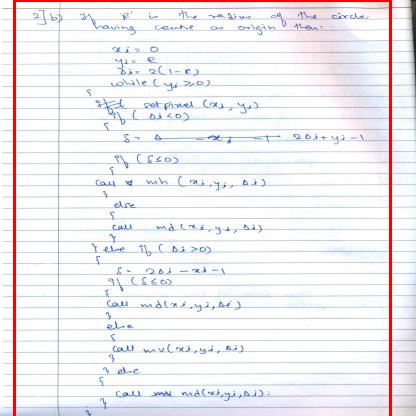 2]b) If 'R' is the radius of the circle
having centre as origin then:
xi = 0
yi = R
Δi = 2(1-R)
while (yi ≥ 0)
{
setpixel (xi, yi)
if ( Δi < 0 )
{
δ = 2Δi + yi - 1
if (δ ≤ 0)
{
call mh (xi, yi, Δi)
}
else
{
call md (xi, yi, Δi)
}
} else if ( Δi > 0 )
{
δ = 2Δi - xi - 1
if (δ ≤ 0)
{
call md (xi, yi, Δi)
}
else
{
call mv (xi, yi, Δi)
}
} else
{
call md (xi, yi, Δi);
}